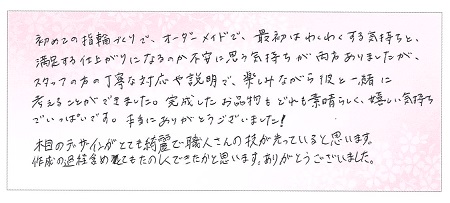 初めての指輪づくりで、オーダーメイドで、最初はわくわくする気持ちと、
満足する仕上がりになるのか不安に思う気持ちが両方ありましたが、
スタッフの方の丁寧な対応や説明で、楽しみながら彼と一緒に
考えることができました。完成したお品物もどれも素晴らしく、嬉しい気持ち
でいっぱいです。本当にありがとうございました!
木目のデザインがとても綺麗で職人さんの技が光っていると思います。
作成の過程含めてもたのしくできたかと思います。ありがとうございました。